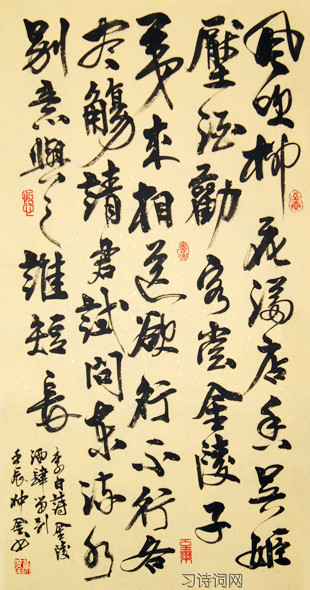 風吹柳花满店香吴姬
壓酒勸客嘗金陵子
弟来相送欲行不行各
尽觴請君試問東流水
别意與之誰短長
李白詩金陵
酒肆留别
壬辰仲
习诗词网